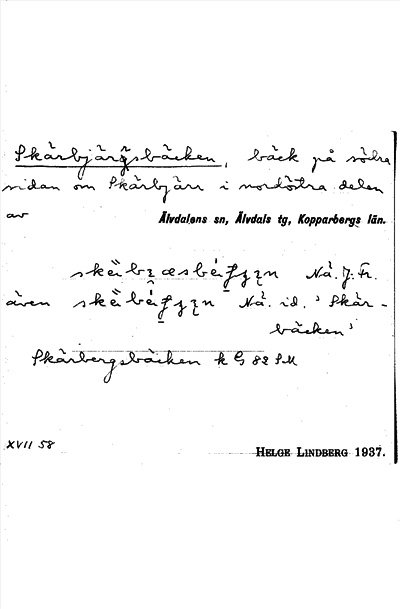 Skärbjärgsbäcken, bäck på södra
sidan om Skärbjärr i nordöstra delen
av Älvdalens sn, Älvdals tg, Kopparbergs län.
Nå. J. Fr.
även Nå. id. ' Skär-
bäcken'
Skärbergsbäcken k G 82 S.M
XVII 58
HELGE LINDBERG 1937.